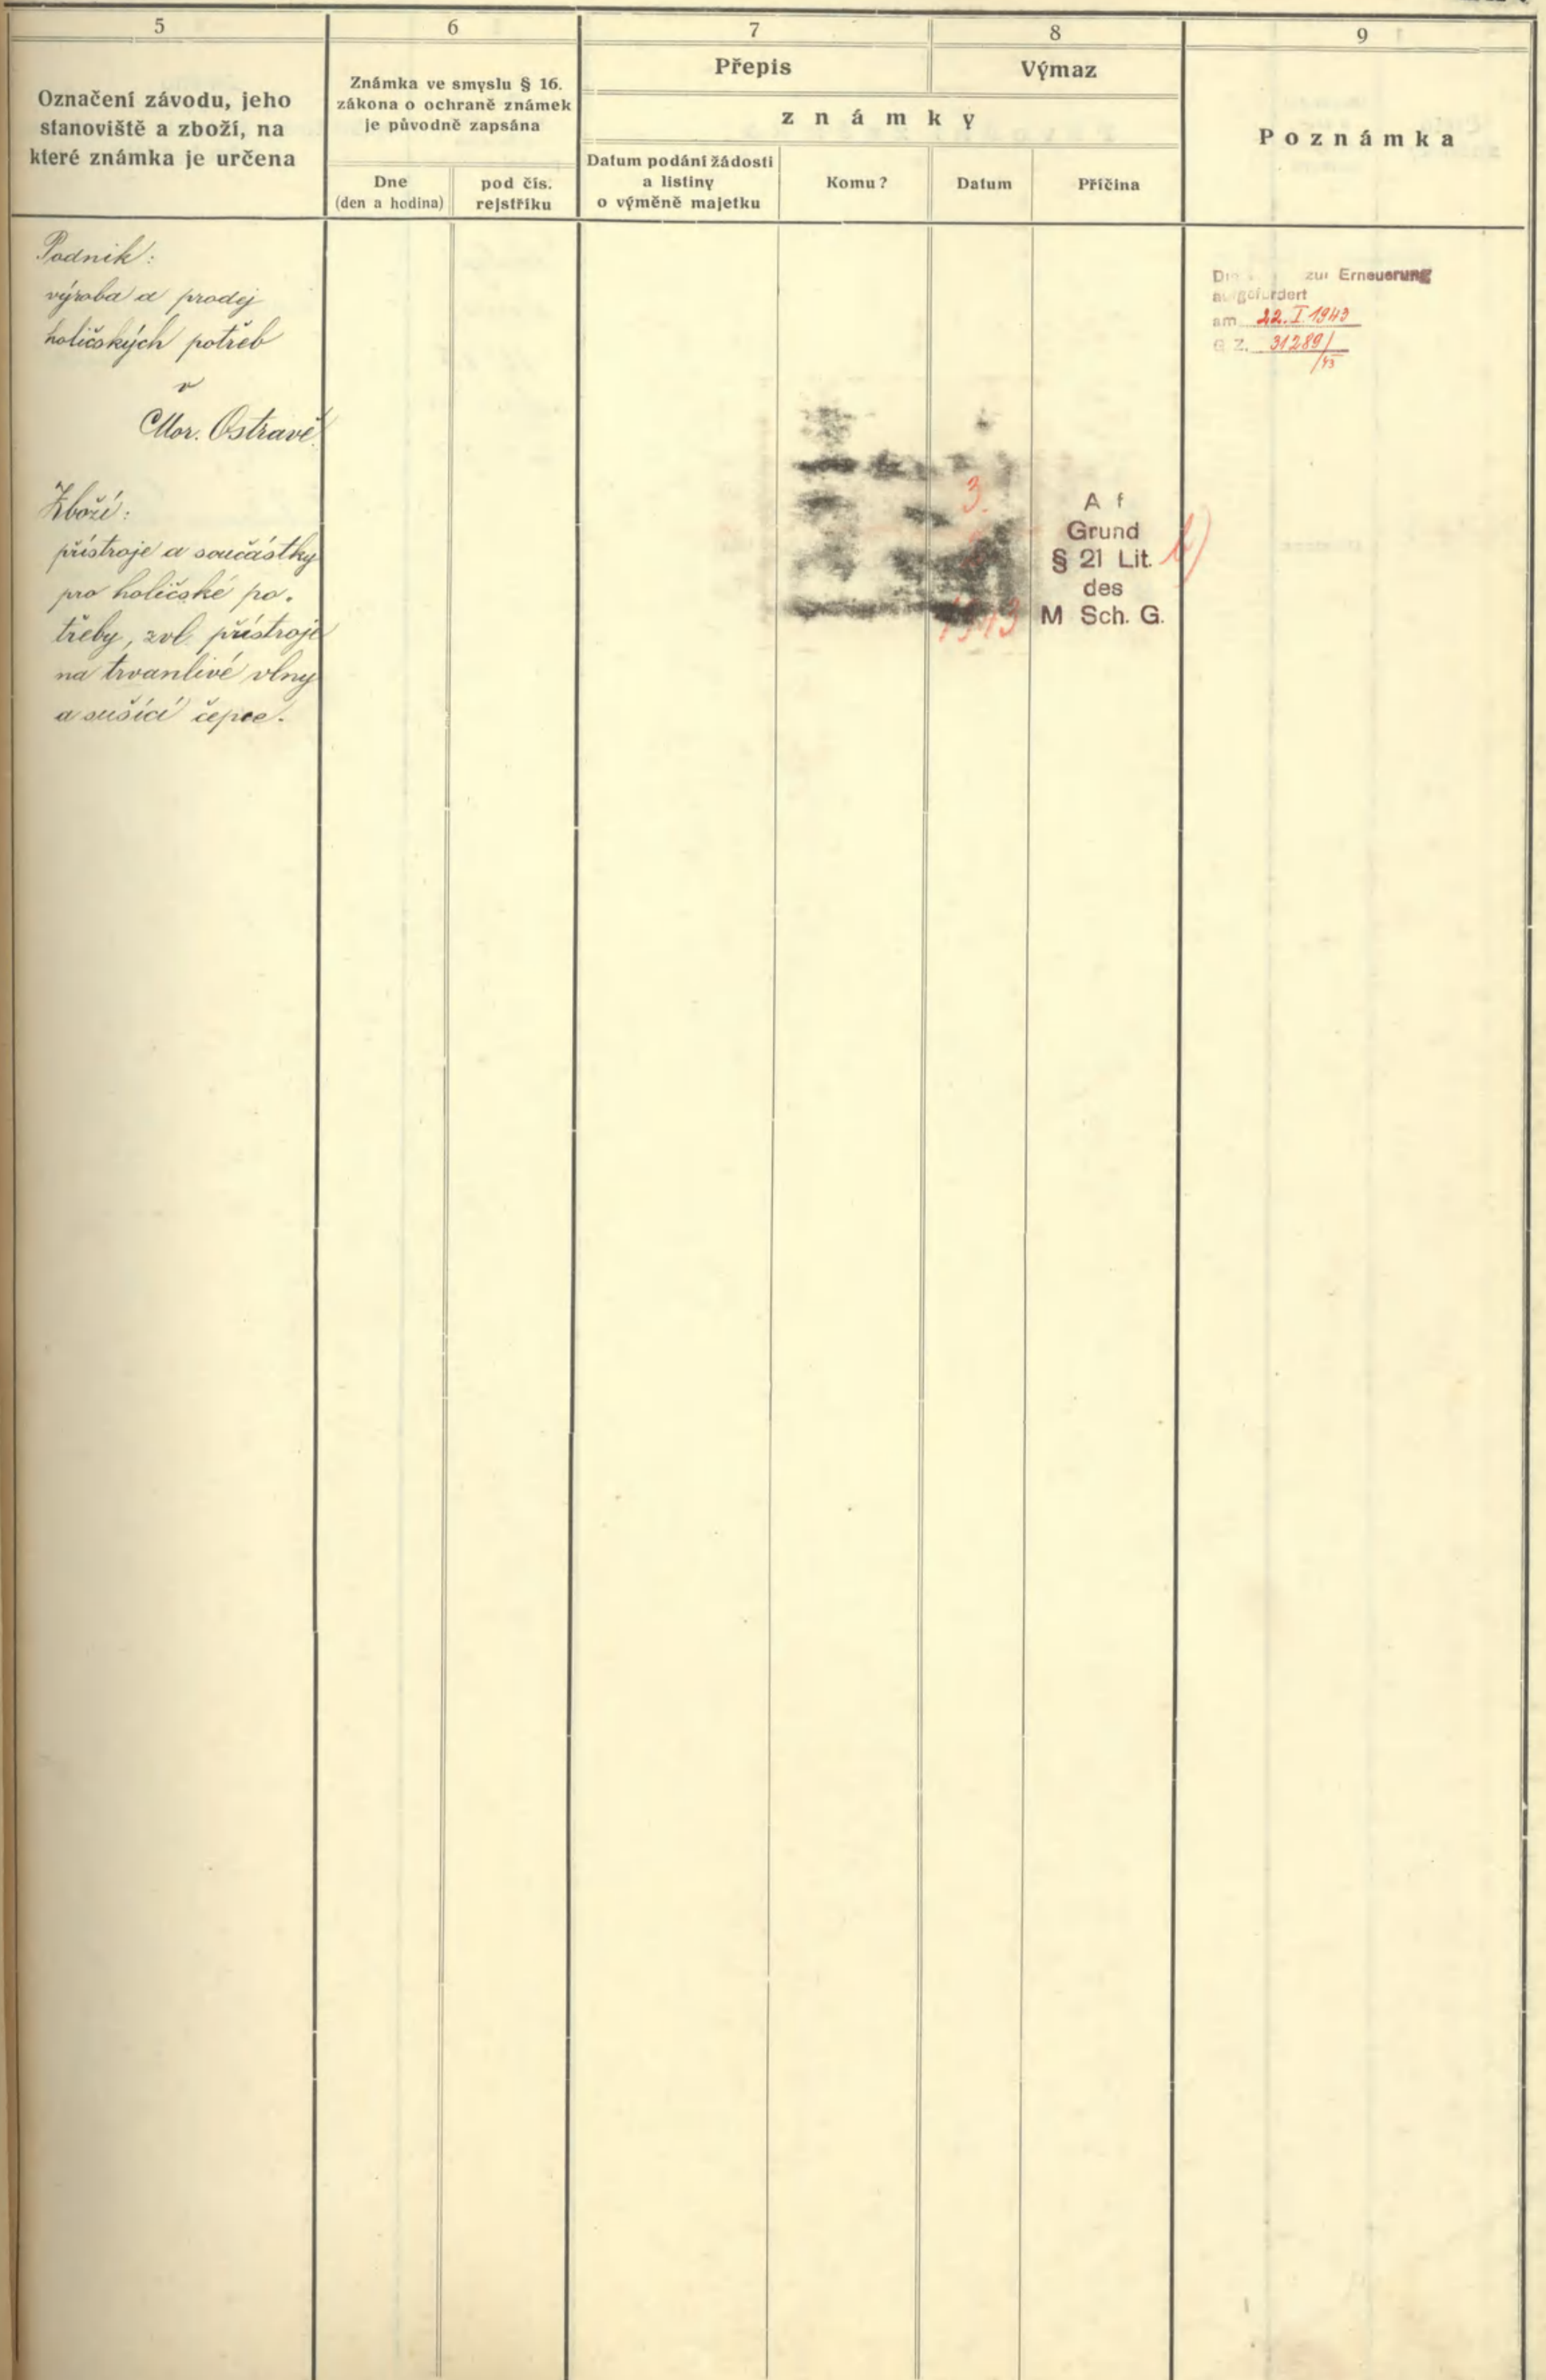 5
Označení závodu, jeho
stanoviště a zboží, na
které známka je určena
6
Známka ve smyslu § 16.
zákona o ochraně známek
je původně zapsána
Dne
(den a hodina)
pod čís.
rejstříku
7
8
Přepis
Výmaz
známky
Datum podání žádosti
a listiny
o výměně majetku
Komu?
Datum
Příčina
9
Poznámka
Podnik:
výroba a prodej
holičských potřeb
v
Mor. Ostravě.
Zboží:
přístroje a součástky
pro holičské po-
třeby, zvl. přístroje
na trvanlivé vlny
a sušící čepce.
3.
1943
A f
Grund
§ 21 Lit. b)
des
M Sch. G.
zur Erneuerung
aufgefordert
am 22. I. 1943
G Z. 31289/
/43